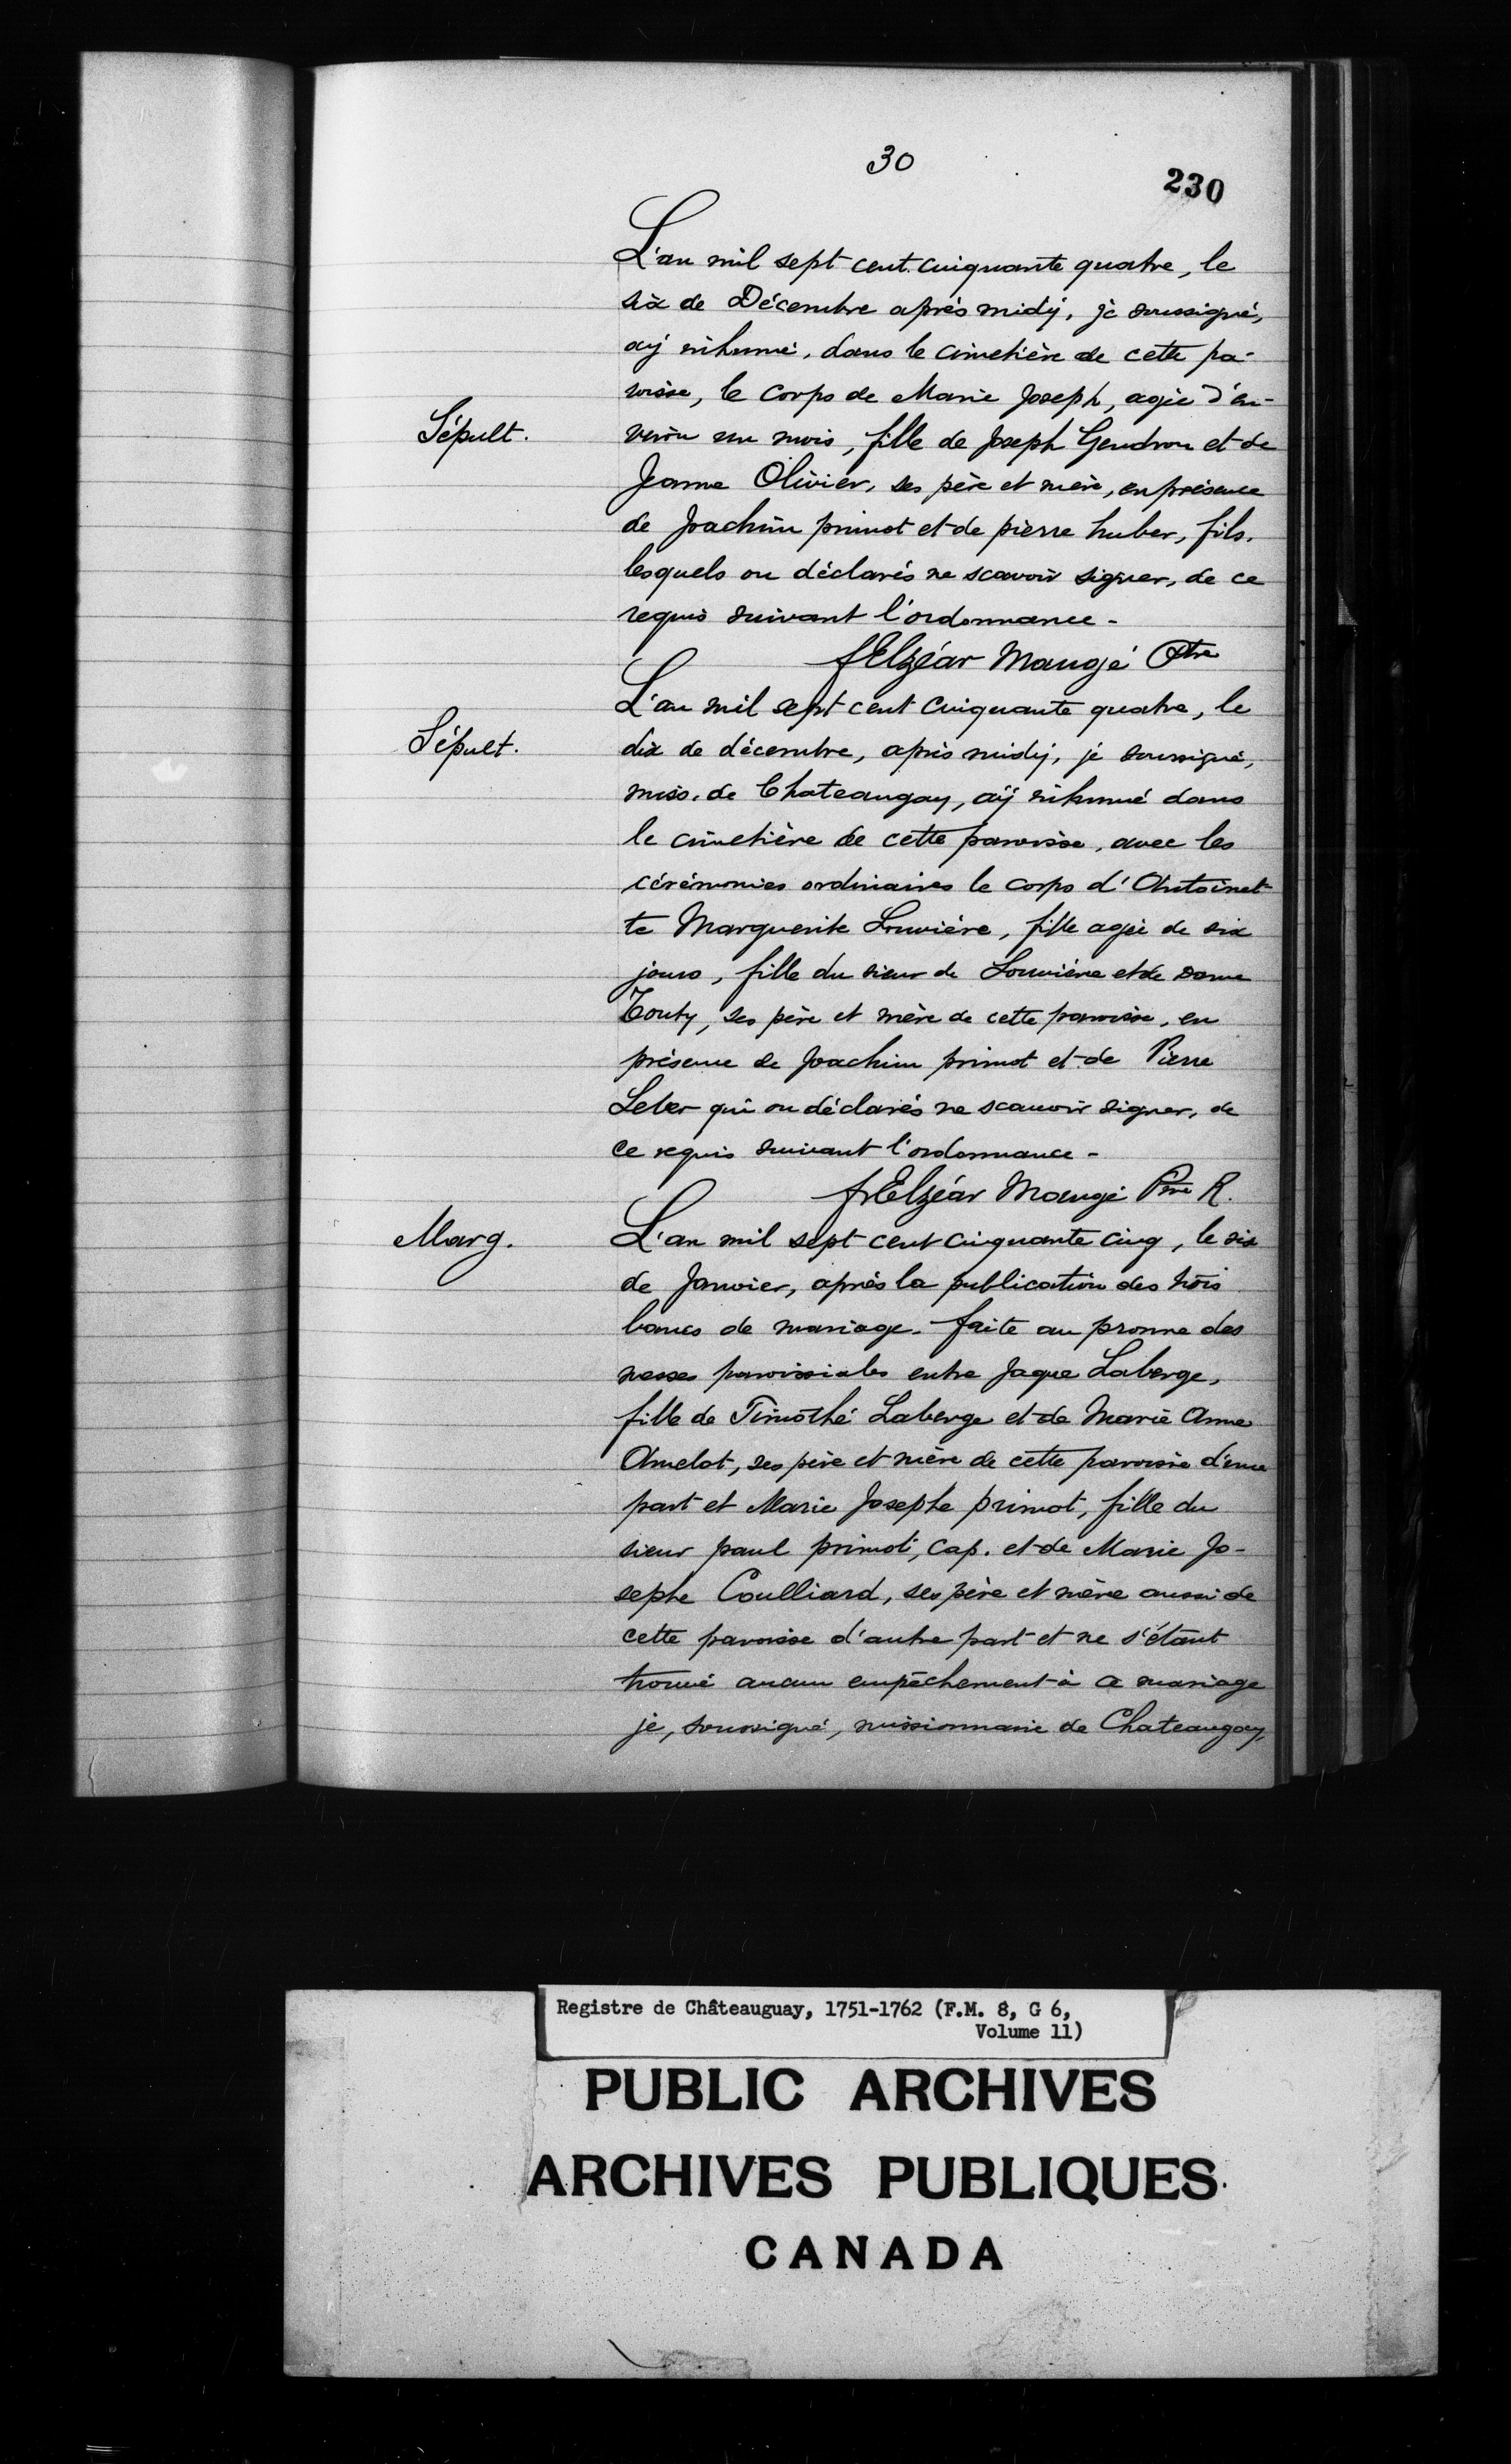 30
230
L'an mil sept cent cinquante quatre, le
six de Décembre après midÿ, je soussigné,
aÿ inhumé, dans le cimetière de cette pa-
roisse, le corps de Marie Joseph, agée d'en-
Sépult.
viron un mois, fille de Joseph Gendron et de
Jeanne Olivier, ses père et mère, en présence
de Joachim primot et de pierre huber, fils.
lesquels on déclarés ne scavoir signer, de ce
requis suivant l'ordonnance -
f Elzéar Maugé Ptre
L'an mil sept cent cinquante quatre, le
Sépult.
dix de décembre, après midÿ, je soussigné,
miss. de Chateaugay, aÿ inhumé dans
le cimetière de cette paroisse, avec les
cérémonies ordinaires le corps d'Antoinet-
te Marguerite Louvière, fille agée de six
jours, fille du sieur de Louvière et de dame
Touty, ses père et mère de cette paroisse, en
présence de Joachim primot et de Pierre
Leber qui on déclarés ne scauoir signer, de
ce requis suivant l'ordonnance -
fr Elzéar Maugé Ptre R.
Marg.
L'an mil sept cent cinquante cinq, le six
de Janvier, après la publication des trois
bancs de mariage. faite au pronne des
messes paroissiales entre Jaque Laberge,
fille de Timothé Laberge et de Marie Anne
Amelot, ses père et mère de cette paroisse d'une
part et Marie Josephe primot, fille du
sieur paul primot, cap. et de Marie Jo-
sephe Coulliard, ses père et mère aussi de
cette paroisse d'autre part et ne s'étant
trouvé aucun empêchement à ce mariage
je, soussigné, missionnaire de Chateaugay,
Registre de Châteauguay, 1751-1762 (F.M. 8, G 6,
Volume 11)
PUBLIC ARCHIVES
ARCHIVES PUBLIQUES
CANADA